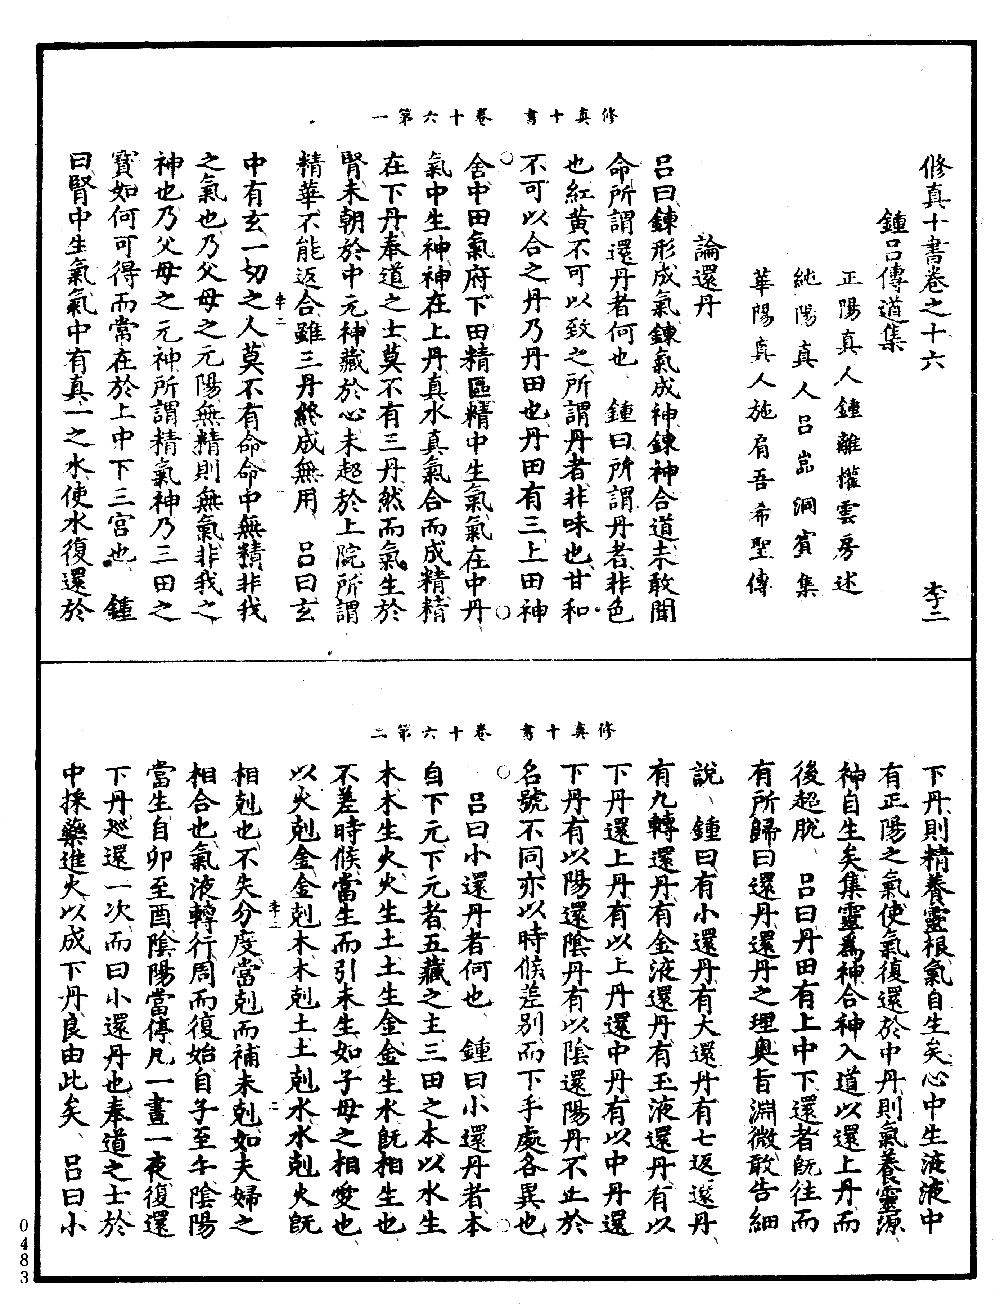 修真十書　卷十六第一
修真十書卷之十六　李二
鍾呂傳道集
正陽真人鍾離權雲房述
純陽真人呂嵓洞賓集
華陽真人施肩吾希聖傳
論還丹
呂曰鍊形成氣鍊氣成神鍊神合道未敢聞
命所謂還丹者何也　鍾曰所謂丹者非色
也紅黃不可以致之所謂丹者非味也甘和
不可以合之丹乃丹田也丹田有三上田神
舍中田氣府下田精區精中生氣氣在中丹
氣中生神神在上丹真水真氣合而成精精
在下丹奉道之士莫不有三丹然而氣生於
腎未朝於中元神藏於心未超於上院所謂
精華不能返合雖三丹終成無用　呂曰玄
中有玄一切之人莫不有命命中無精非我
李二
之氣也乃父母之元陽無精則無氣非我之
神也乃父母之元神所謂精氣神乃三田之
寶如何可得而當在於上中下三宮也　鍾
曰腎中生氣氣中有真一之水使水復還於
修真十書　卷十六第二
下丹則精養靈根氣自生矣心中生液液中
有正陽之氣使氣復還於中丹則氣養靈源
神自生矣集靈為神合神入道以還上丹而
後超脫　呂曰丹田有上中下還者既往而
有所歸曰還丹還丹之理奧旨淵微敢告細
說　鍾曰有小還丹有大還丹有七返還丹
有九轉還丹有金液還丹有玉液還丹有以
下丹還上丹有以上丹還中丹有以中丹還
下丹有以陽還陰丹有以陰還陽丹不止於
名號不同亦以時候差別而下手處各異也
呂曰小還丹者何也　鍾曰小還丹者本
自下元下元者五藏之主三田之本以水生
木木生火火生土土生金金生水既相生也
不差時候當生而引未生如子母之相愛也
以火剋金金剋木木剋土土剋水水剋火既
李二　二
相剋也不失分度當剋而補未剋如夫婦之
相合也氣液轉行周而復始自子至午陰陽
當生自卯至酉陰陽當停凡一晝一夜復還
下丹巡還一次而曰小還丹也奉道之士於
中採藥進火以成下丹良由此矣　呂曰小
0483